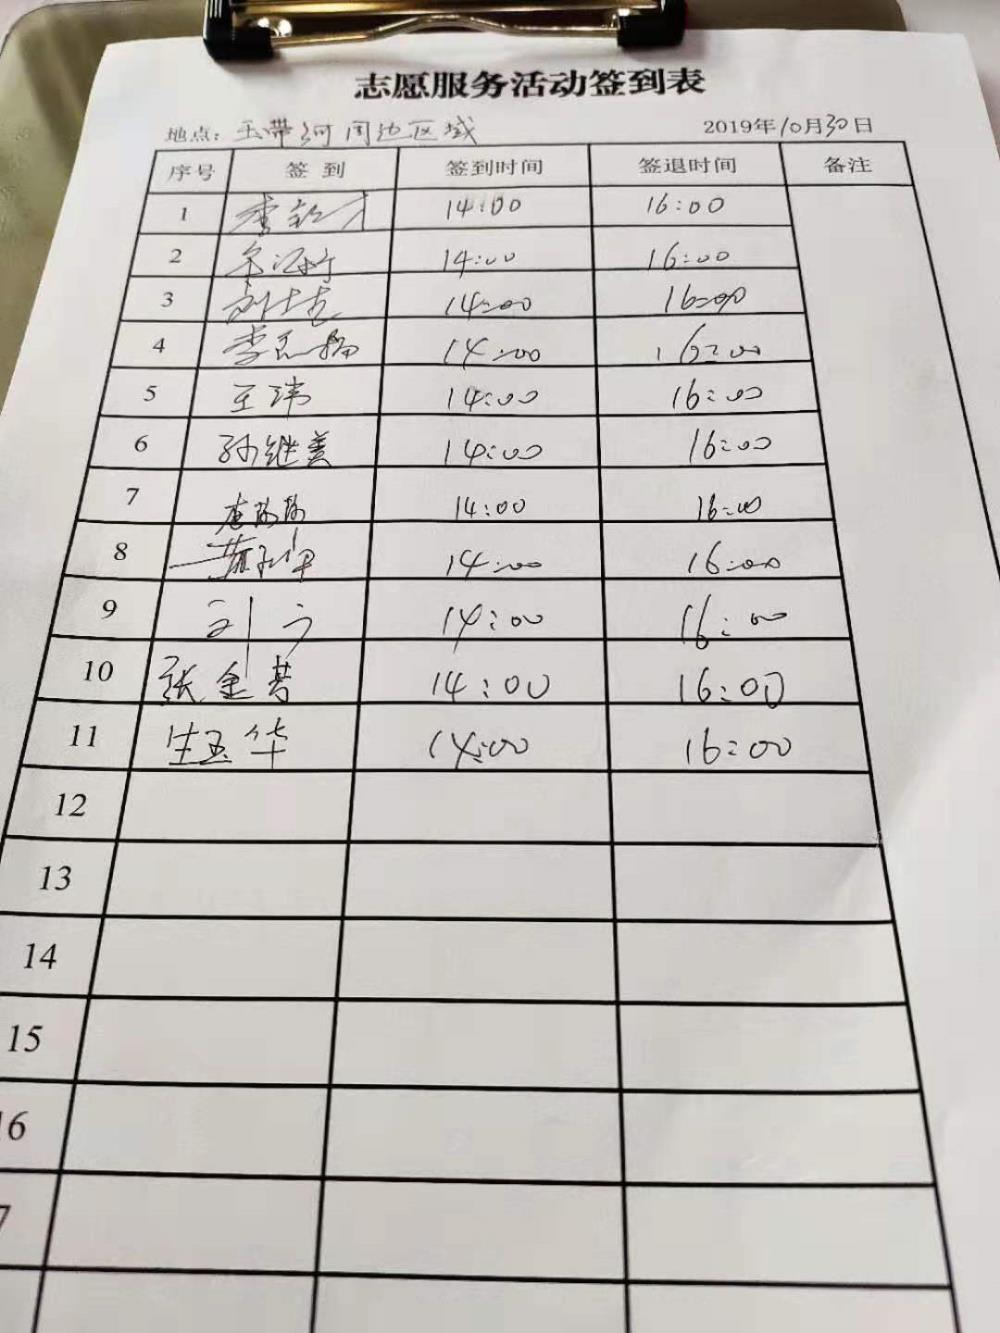 志愿服务活动签到表
地点：玉带河周边区域 2019年10月30日
序号 签到 签到时间 签退时间 备注
1 14:00 16:00
2 14:00 16:00
3 14:00 16:00
4 李 14:00 16:00
5 王玮 14:00 16:00
6 孙继美 14:00 16:00
7 14:00 16:00
8 14:00 16:00
9 刘广 14:00 16:00
10 张金芳 14:00 16:00
11 生玉华 14:00 16:00
12
13
14
15
16
7